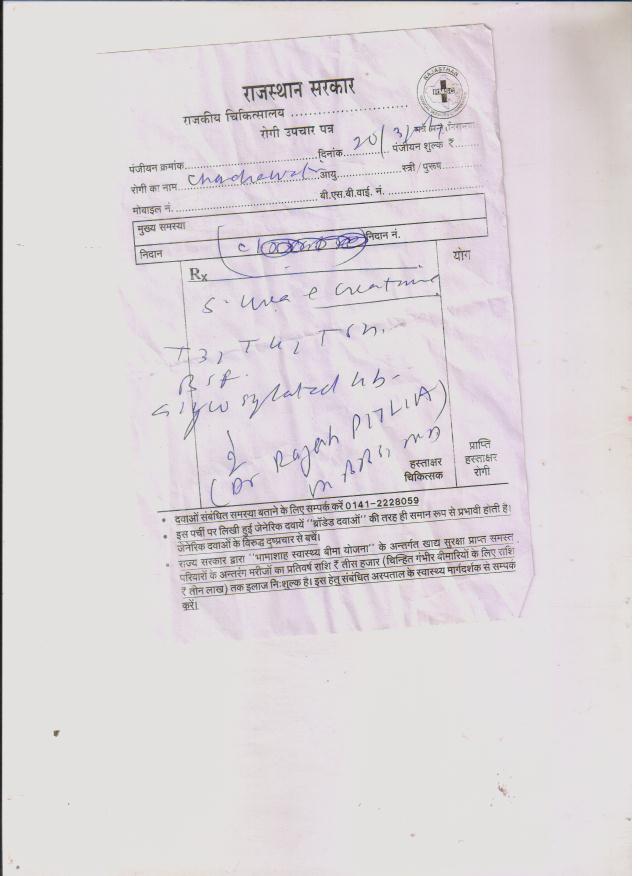 राजस्थान सरकार
राजकीय चिकित्सालय ............................
रोगी उपचार पत्र
पंजीयन क्रमांक............................दिनांक 20/3/ पंजीयन शुल्क ₹......
रोगी का नाम आयु............... स्त्री / पुरूष............
मोबाइल नं. ............................ बी.एस.बी.वाई. नं. ............................
मुख्य समस्या
निदान निदान नं.
Rx योग
S. Urea e Creatinine
T3, T4, TSH.
BSF.
Glycosylated Hb-
(Dr Rajesh PITLIA)
MBBS, MD
हस्ताक्षर
चिकित्सक
प्राप्ति
हस्ताक्षर
रोगी
• दवाओं संबंधित समस्या बताने के लिए सम्पर्क करें 0141-2228059
• इस पर्ची पर लिखी हुई जेनेरिक दवायें "ब्रॉडेड दवाओं" की तरह ही समान रूप से प्रभावी होती है।
जेनेरिक दवाओं के विरुद्ध दुष्प्रचार से बचें।
• राज्य सरकार द्वारा "भामाशाह स्वास्थ्य बीमा योजना" के अन्तर्गत खाद्य सुरक्षा प्राप्त समस्त
परिवारों के अन्तरंग मरीजों का प्रतिवर्ष राशि ₹ तीस हजार (चिन्हित गंभीर बीमारियों के लिए राशि
₹ तीन लाख) तक इलाज निःशुल्क है। इस हेतु संबंधित अस्पताल के स्वास्थ्य मार्गदर्शक से सम्पर्क
करें।